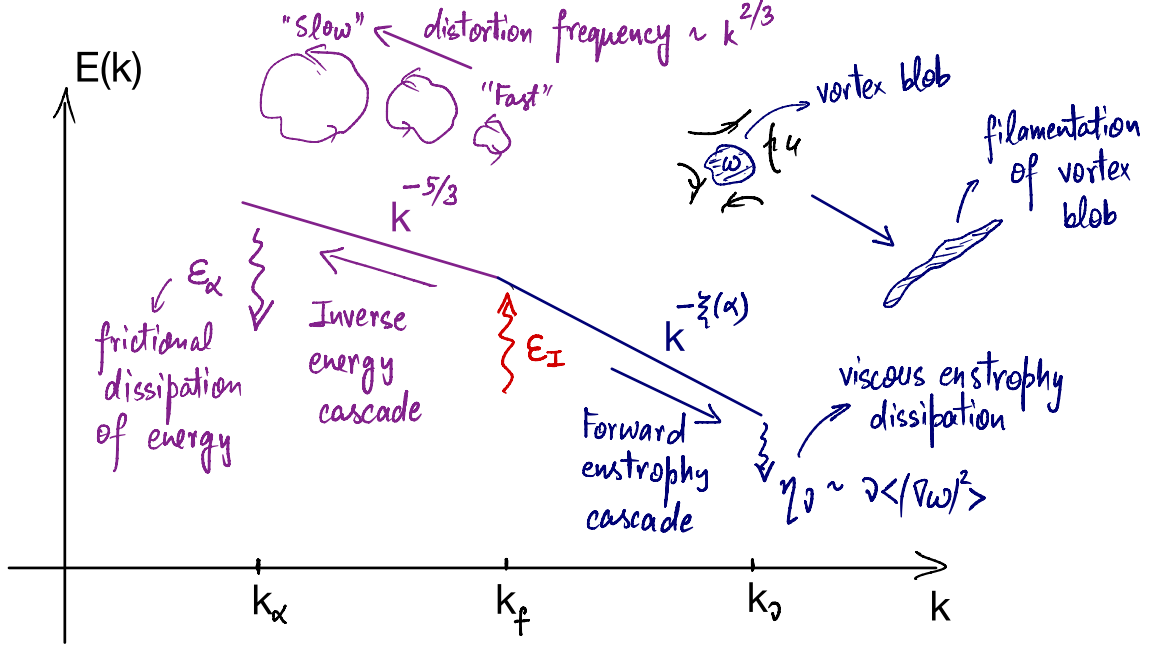 "Slow"
distortion frequency ~ k^{2/3}
"Fast"
E(k)
vortex blob
ω
u
filamentation
of vortex
blob
k^{-5/3}
ε_α
frictional
dissipation
of energy
Inverse
energy
cascade
ε_I
k^{-ξ(α)}
Forward
enstrophy
cascade
viscous enstrophy
dissipation
η_ν ~ ν<(∇ω)^2>
k_α
k_f
k_ν
k